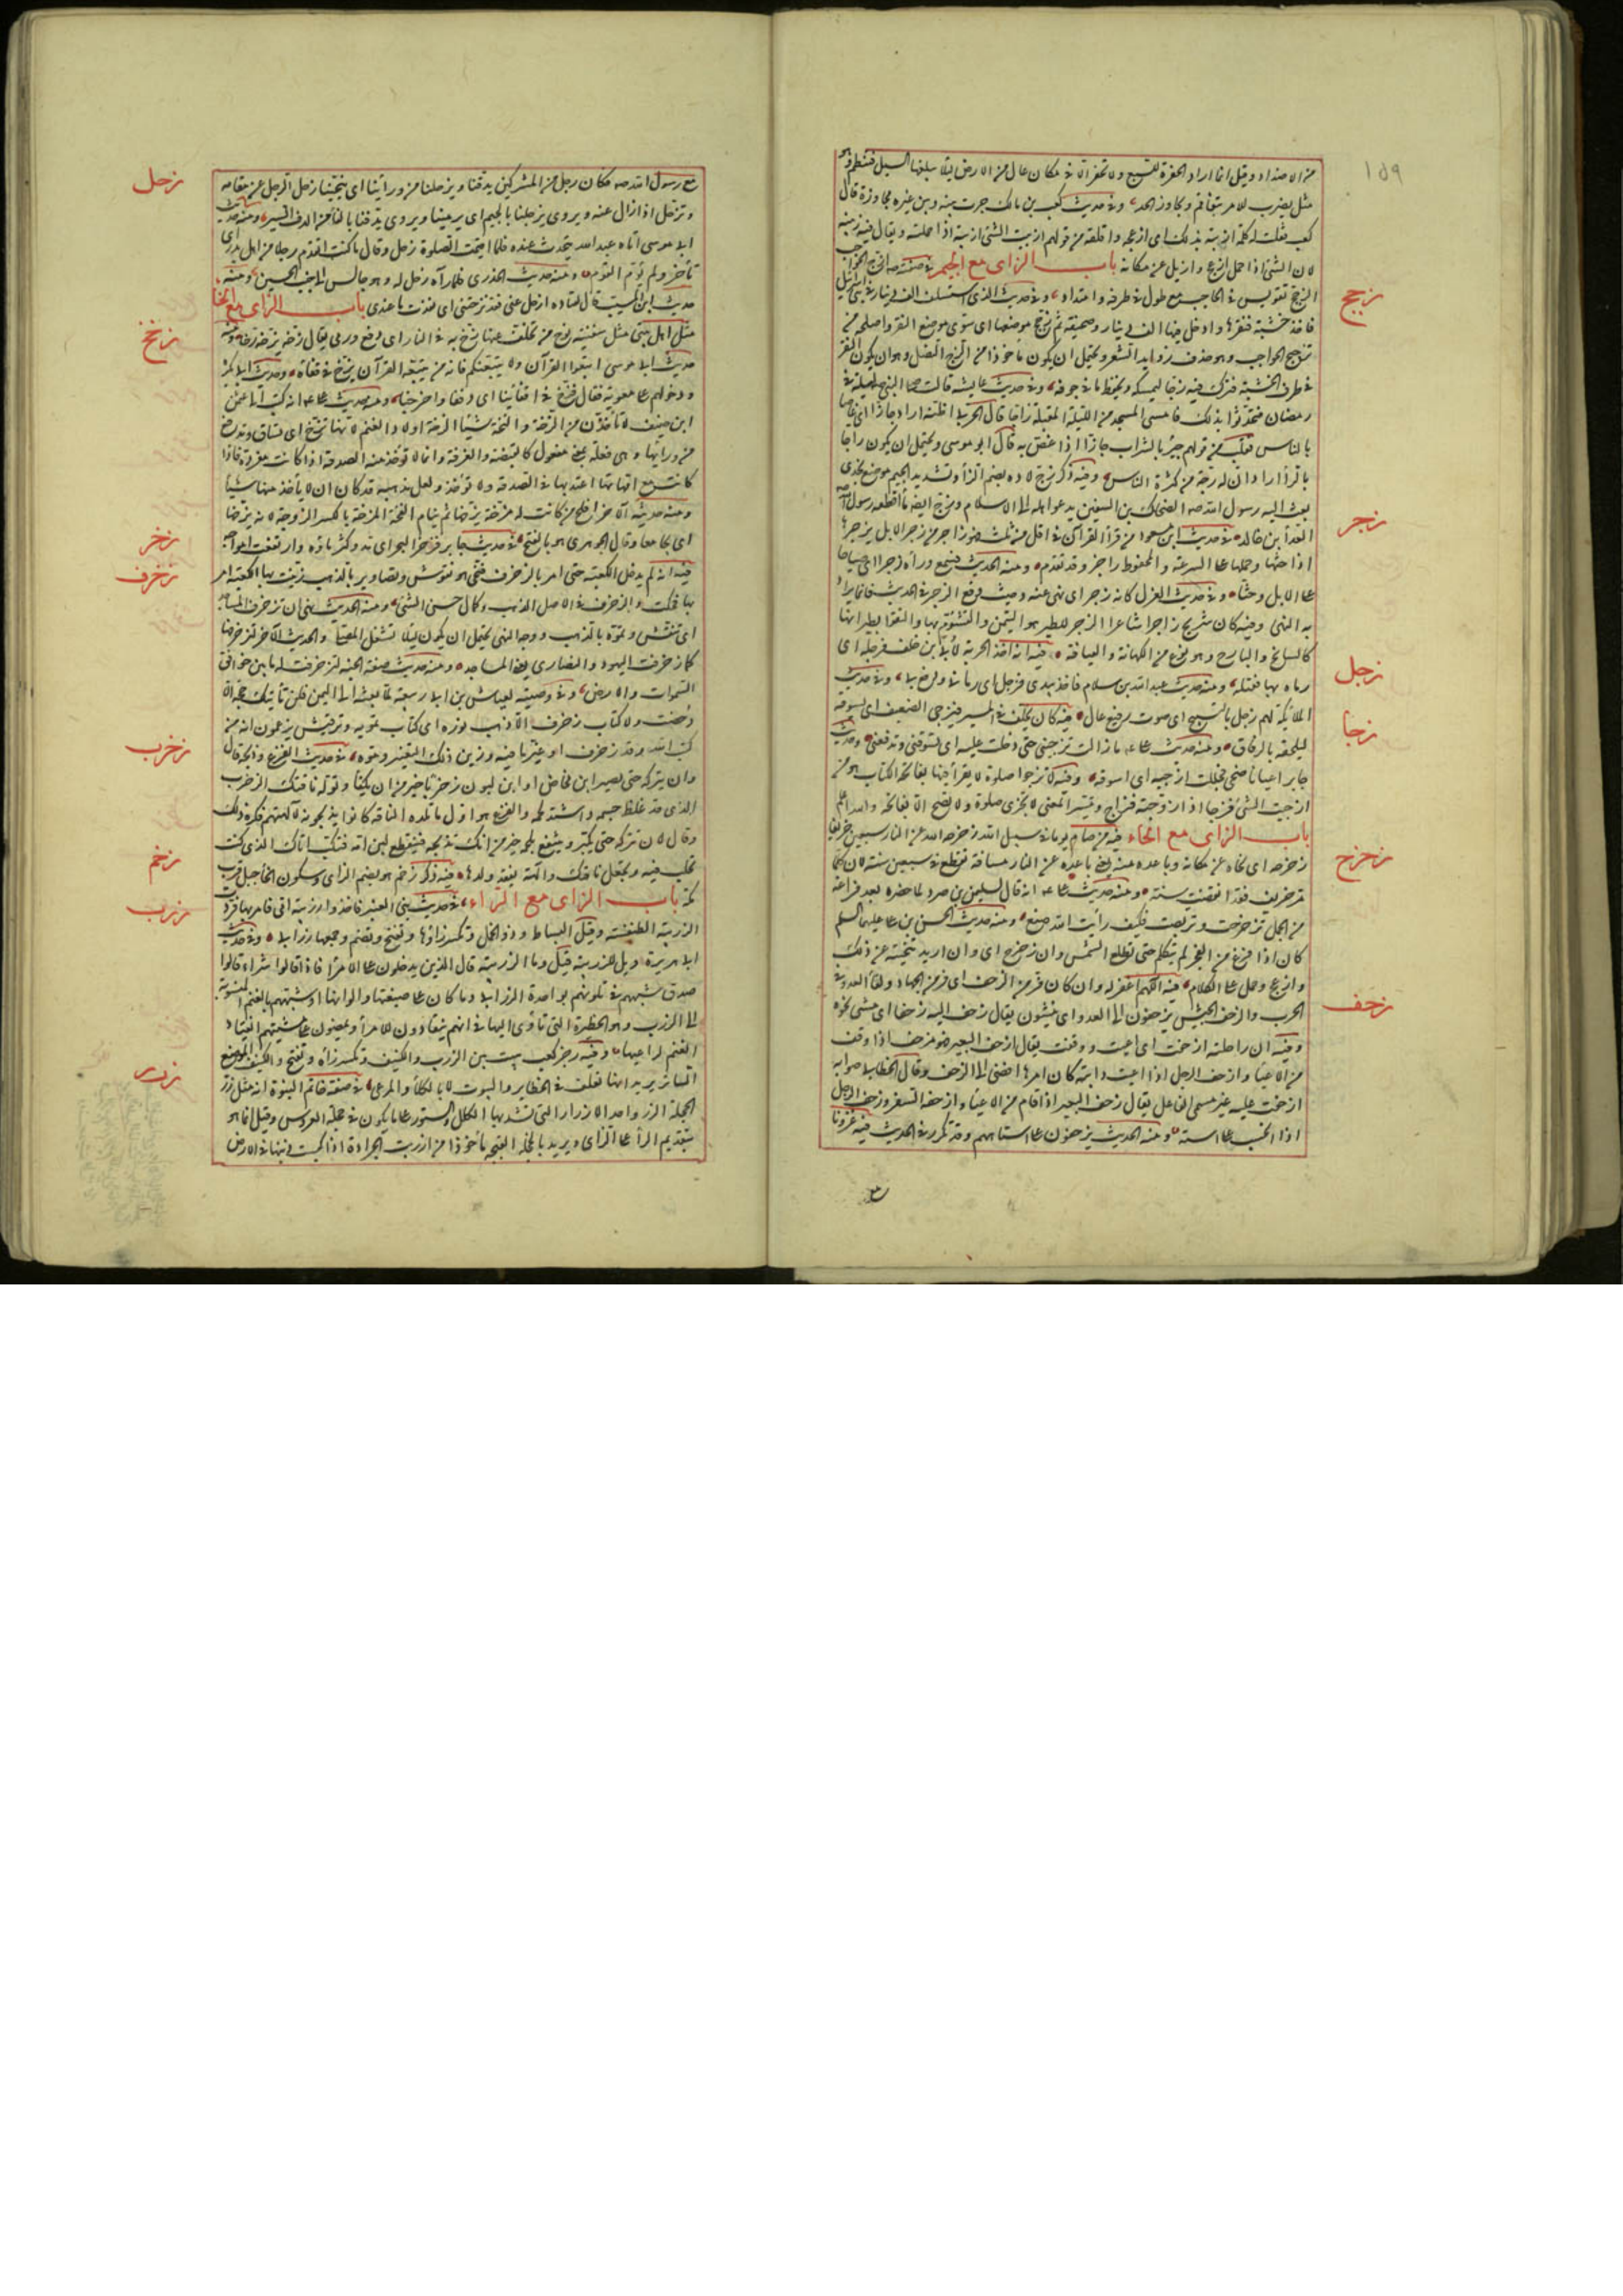 ١٥٩
من الاضداد وقيل انما اراد الحفرة للسبع ولا تحفر الا في مكان عال من الارض ليلا يبلغها السيل فتنطم وهو
مثل يضرب للامر يتفاقم ويجاوز الحد وفي حديث كعب بن مالك جرت بينه وبين غيره محاورة قال
كعب فقلت له كلمة ازبيته بذلك اى ازعجه واقلقه من قولهم ازبيت الشئ ازبيه اذا حملته ويقال فيه زبيته
لان الشئ اذا حمل ازعج وازيل عن مكانه باب الزاى مع الجيم في صفته صه ازج الحواجب
الزجج تقويس في الحاجب مع طول في طرفه وامتداد وفي حديث الذى استسلف الف دينار في بنى اسرائيل
فاخذ خشبة فنقرها وادخل فيها الف دينار وصحيفة ثم زجج موضعها اى سوى موضع النقر واصلحه من
تزجيج الحواجب وهو حذف زوايد الشعر ويحتمل ان يكون ماخوذا من الزج النصل وهو ان يكون النقر
في طرف الخشبة فترك فيه زجا ليمسكه ويحفظ ما في جوفه وفي حديث عايشه قالت صلى النبى صه ليلة في
رمضان فتحدثوا بذلك فامسى المسجد من الليلة المقبلة زاجا قال الحربى اظنه اراد جازا اى غاصا
بالناس فقلب من قولهم جئز بالشراب جازا اذا غص به قال ابو موسى ويحتمل ان يكون راجا
بالراء اراد ان له رجة من كثرة الناس وفيه ذكر زج لاوه بضم الزاء وتشديد الجيم موضع نجدى
بعث اليه رسول الله صه الضحاك بن سفين يدعو اهله الى الاسلام وزج ايضه ماء اقطعه رسول الله صه
العداء بن خالد في حديث ابن مسعود من قرأ القرآن في اقل من ثلث فهو زاجر من زجر الابل يزجرها
اذا حثها وحملها على السرعة والمحفوظ راجز وقد تقدم ومنه الحديث فسمع وراءه زجرا اى صياحا
على الابل وحثا وفي حديث العزل كانه زجر اى نهى عنه وحيث وقع الزجر في الحديث فانما يراد
به النهى وفيه كان شريح زاجرا شاعرا الزجر للطير هو التيمن والتشؤم بها والتفؤل بطيرانها
كالسانح والبارح وهو نوع من الكهانة والعيافة فيه انه اخذ الحربة لأبى بن خلف فزجله اى
رماه بها فقتله ومنه حديث عبد الله بن سلام فاخذ بيدى فزجل بى اى رمانى ودفع بى وفي حديث
الملائكة لهم زجل بالتسبيح اى صوت رفيع عال فيه كان يتخلف في المسير فيزجى الضعيف اى يسوقه
ليلحقه بالرفاق ومنه حديث على ع م ما زالت تزجينى حتى دخلت عليه اى تسوقنى وتدفعنى وحديث
جابر اعيا ناضحى فجعلت ازجيه اى اسوقه وفيه لا تزجوا صلوة لا يقرأ فيها بفاتحة الكتاب هو من
ازجيت الشئ فزجا اذا روجته فراج وتيسر المعنى لا تجزى صلوة ولا تصح الا بفاتحة والله اعلم
باب الزاى مع الحاء فيه من صام يوما في سبيل الله زحزحه الله عن النار سبعين خريفا
زحزحه اى نحاه عن مكانه وباعده منه يعنى باعده عن النار مسافة تقطع في سبعين سنة لان كلما
مر خريف فقد انقضت سنة ومنه حديث على ع م انه قال لسليمن بن صرد لما حضره بعد فراغه
من الجمل تزحزحت وتربصت فكيف رأيت الله صنع ومنه حديث الحسن بن على عليهما السلم
كان اذا فرغ من الفجر لم يتكلم حتى تطلع الشمس وان زحزح اى وان اريد تنحيته عن ذلك
وازعج وحمل على الكلام فيه اللهم اغفر له وان كان فر من الزحف اى فر من الجهاد ولقاء العدو في
الحرب والزحف الجيش يزحفون الى العدو اى يمشون يقال زحف اليه زحفا اى مشى نحوه
وفيه ان راحلته ازحفت اى اعيت ووقفت يقال ازحف البعير فهو مزحف اذا وقف
من الاعياء وازحف الرجل اذا اعيت دابته كان امرها افضى الى الزحف وقال الخطابى صوابه
ازحفت عليه غير مسمى الفاعل يقال زحف البعير اذا قام من الاعياء وازحفه السفر وزحف الرجل
اذا انسحب على استه ومنه الحديث يزحفون على استاههم وقد تكرر في الحديث فيه غزونا
زجج
زجر
زجل
زجا
زحزح
زحف
مع رسول الله صه فكان رجل من المشركين يدقنا ويزحلنا من ورائنا اى ينحينا زحل الرجل عن مقامه
وتزحل اذا زال عنه ويروى يزجلنا بالجيم اى يرمينا ويروى يدفنا بالفاء من الدف السير ومنه حديث
ابى موسى اتاه عبد الله يتحدث عنده فلما اقيمت الصلوة زحل وقال ما كنت اتقدم رجلا من اهل بدر اى
تأخر ولم يؤم القوم ومنه حديث الخدرى فلما رآه زحل له وهو جالس الى جنب الحسين ومنه
حديث ابن المسيب قال لقتاده ازحل عنى فقد نزحتنى اى انفدت ما عندى باب الزاى مع الخاء
مثل اهل بيتى مثل سفينة نوح من تخلف عنها زخ به في النار اى دفع ورمى يقال زخه يزخه زخا ومنه
حديث ابى موسى اتبعوا القرآن ولا يتبعنكم فانه من يتبعه القرآن يزخ في قفاه وحديث ابى بكرة
ودخولهم على معوية فقال فزخ في اقفائنا اى دفعنا واخرجنا ومنه حديث على ع م انه كتب الى عثمن
ابن حنيف لا تأخذن من الزخة والنخة شيئا الزخة اولاد الغنم لانها تزخ اى تساق وتدفع
من ورائها وهى فعلة بمعنى مفعول كالقبضة والغرفة وانما لا تؤخذ منه الصدقة اذا كانت منفردة فاذا
كانت مع امهاتها اعتد بها في الصدقه ولا تؤخذ ولعل مذهبه قد كان ان لا يأخذ منها شيئا
ومنه حديثه الآخر افلح من كانت له مزخه يزخها ثم ينام الفخه المزخه بالكسر الزوجة لانه يزخها
اى يجامعها وقال الجوهرى هو بالفتح في حديث جابر فزخر البحر اى مد وكثر ماؤه وارتفعت امواجه
فيه انه لم يدخل الكعبة حتى امر بالزخرف فنحى هو نقوش وتصاوير بالذهب زينت بها الكعبة امر
بها فحكت والزخرف في الاصل الذهب وكمال حسن الشئ ومنه الحديث نهى ان تزخرف المساجد
اى تنقش وتموه بالذهب ووجه النهى يحتمل ان يكون ليلا تشغل المصلى والحديث الآخر لتزخرفنها
كما زخرفت اليهود والنصارى يعنى المساجد ومنه حديث صفة الجنة لتزخرفت له ما بين خوافق
السموات والارض وفي وصيته لعياش بن ابى ربيعة لما بعثه الى اليمن فلن تأتيك حجة الا
دحضت ولا كتاب زخرف الا ذهب نوره اى كتاب تمويه وترقيش يزعمون انه من
كتب الله وقد زخرف او غير ما فيه وزين ذلك التغيير وموه في حديث الفرع وذبحه قال
وان يتركه حتى يصير ابن مخاض او ابن لبون زخزبا خير من ان يكفا وتوله ناقتك الزخزب
الذى قد غلظ جسمه واشتد لحمه والفرع هو اول ما تلده الناقه كانوا يذبحونه لآلهتهم فكره ذلك
وقال لان تتركه حتى يكبر وينتفع بلحمه خير من انك تذبحه فينقطع لبن امه فتكب اناك الذى كنت
تحلب فيه وتجعل ناقتك والهة بفقد ولدها فيه ذكر زخم هو بضم الزاى وسكون الخاء جبل قرب
مكة باب الزاى مع الراء في حديث بنى العنبر فاخذوا زربية امى فامر بها فردت
الزربية الطنفسه وقيل البساط وذو الخمل وتكسر زاؤها وتفتح وتضم وجمعها زرابى وفي حديث
ابى هريرة ويل للزربية قيل وما الزربية قال الذين يدخلون على الامراء فاذا قالوا شرا قالوا
صدق شبههم في تلونهم بواحدة الزرابى وما كان على صبغتها والوانها او شبههم بالغنم المنسوبة
الى الزرب وهو الحظيرة التى تأوى اليها في انهم ينقادون للامراء ويمضون على مشيتهم انقياد
الغنم لراعيها وفيه رجز كعب تبيت بين الزرب والكنيف وتكسر زاه وتفتح والكنيف الموضع
الساتر يريد انها تعلف في الحظاير والبيوت لا بالكلاء والمرعى في صفة خاتم النبوة انه مثل زر
الحجلة الزر واحد الازرار التى تشد بها الكلل والستور على ما يكون في حجلة العروس وقيل انما هو
بتقديم الراء على الزاى ويريد بالحجلة القبجه ماخوذا من ارزت الجرادة اذا كبست ذنبها في الارض
زحل
زخخ
زخر
زخرف
زخزب
زخم
زرب
زرر